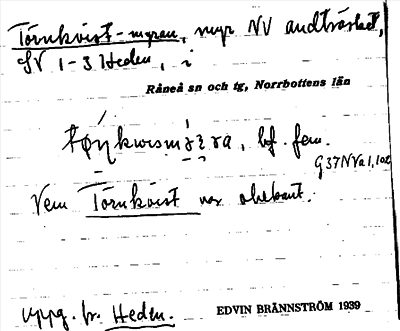 Törnkvist-myran, myr NV andträsket,
SV 1-3 Heden, i
Råneå sn och tg, Norrbottens län
bf. fem.
G37NVa1,1od
Vem Törnkvist var obekant.
uppg. fr. Heden.
EDVIN BRÄNNSTRÖM 1939